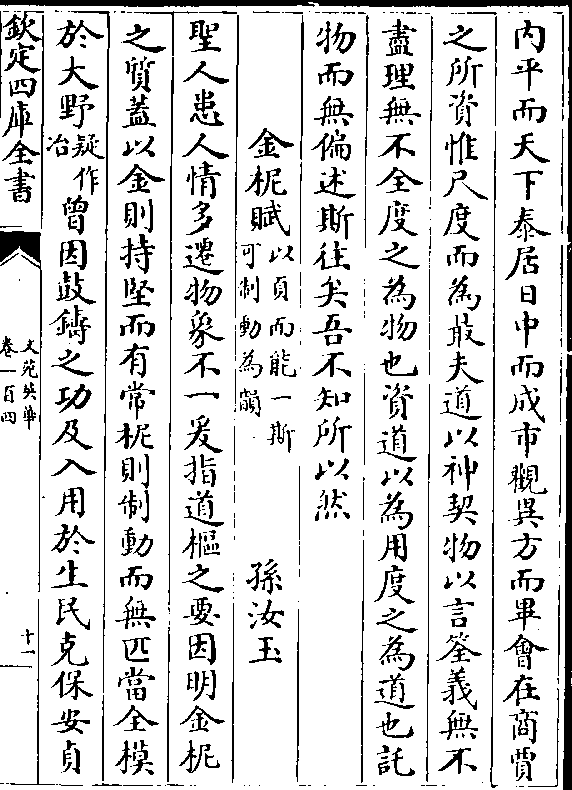 內平而天下泰居日中而成市觀異方而畢會在商賈
之所資惟尺度而為最夫道以神契物以言筌義無不
盡理無不全度之為物也資道以為用度之為道也託
物而無偏述斯往矣吾不知所以然
金柅賦以貞而能一斯可制動為韻
孫汝玉
聖人患人情多遷物象不一爰指道樞之要因明金柅
之質葢以金則持堅而有常柅則制動而無匹當全模
於大野疑作冶曾因鼓鑄之功及入用於生民克保安貞
欽定四庫全書
文苑英華
卷一百四
十一